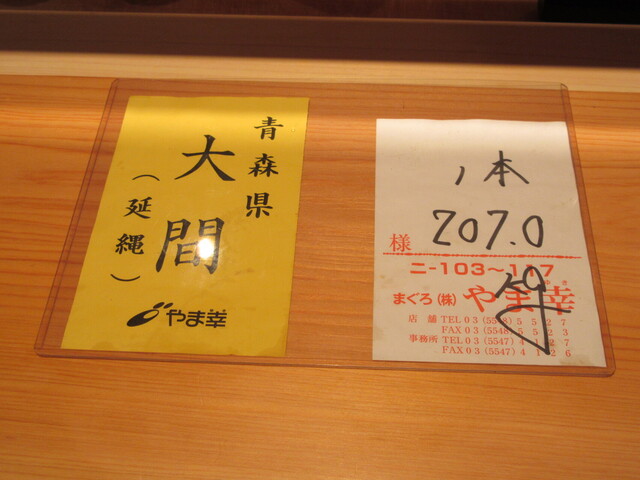 青森県
大間
(延縄)
やま幸
1本
207.0
様
ニ-103～117
まぐろ(株)やま幸
店舗 TEL 03(5548)5527
FAX 03(5548)5523
事務所 TEL 03(5547)4127
FAX 03(5547)4126